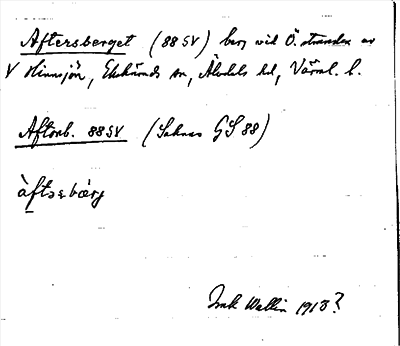 Aftersberget (88 SV) berg vid Ö. stranden av
V Hinnsjön, Ekshärads sn, Älvdals hd, Värml. l.
Aftonb. 88 SV (Saknas GS 88)
àftɔsbærj
Wallin 1913?